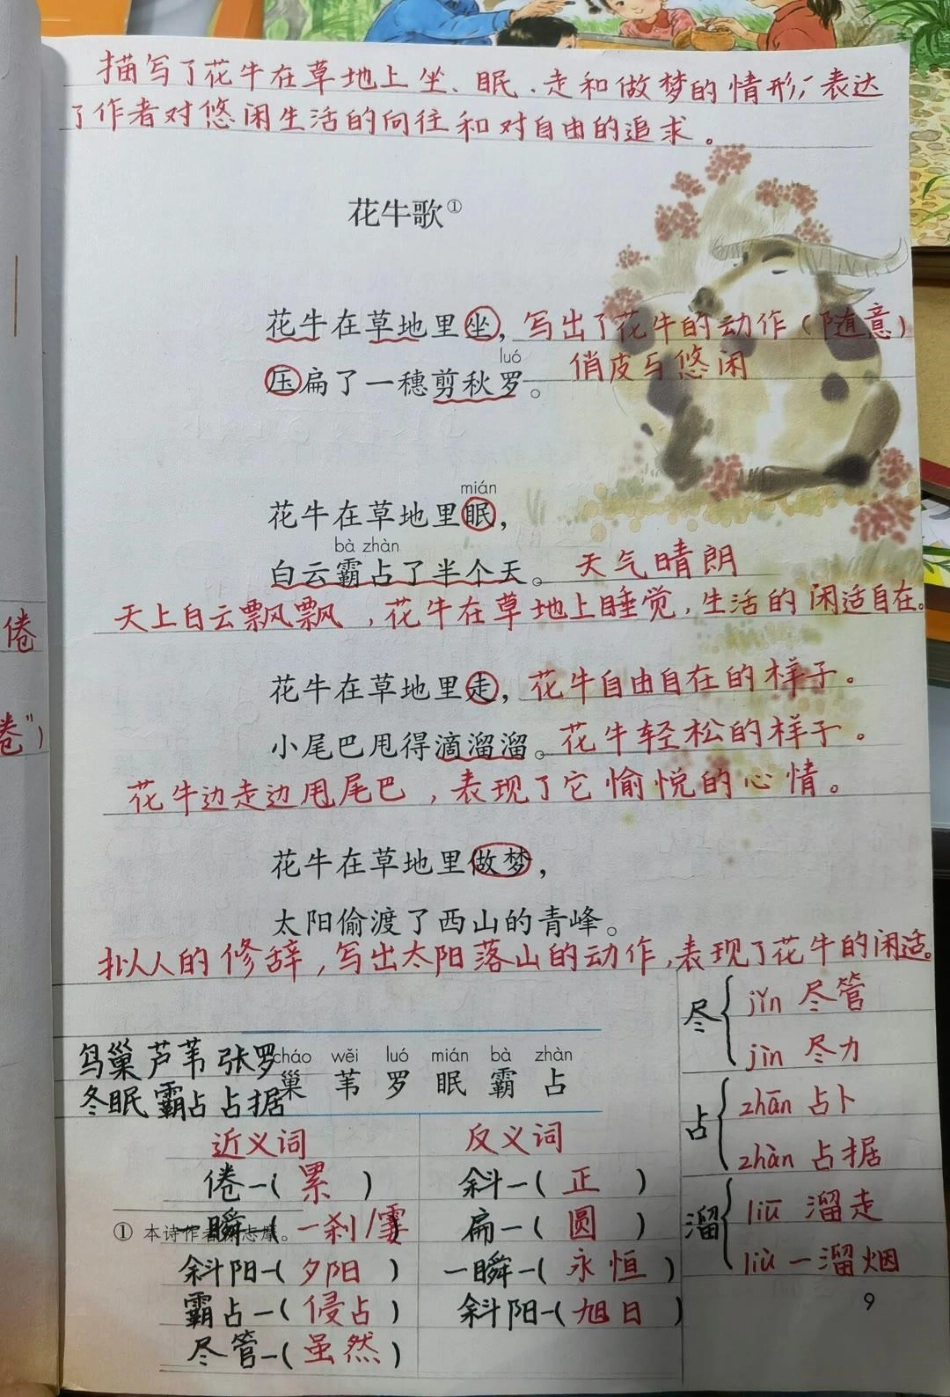 描写了花牛在草地上坐、眠、走和做梦的情形,表达
了作者对悠闲生活的向往和对自由的追求。
花牛歌①
花牛在草地里坐，写出了花牛的动作（随意）
luó
俏皮与悠闲
压扁了一穗剪秋罗。
mián
花牛在草地里眠，
bà zhàn
白云霸占了半个天。天气晴朗
天上白云飘飘，花牛在草地上睡觉,生活的闲适自在。
倦
花牛在草地里走，花牛自由自在的样子。
卷”）
小尾巴甩得滴溜溜。花牛轻松的样子。
花牛边走边甩尾巴，表现了它愉悦的心情。
花牛在草地里做梦，
太阳偷渡了西山的青峰。
拟人的修辞,写出太阳落山的动作,表现了花牛的闲适。
尽{ jǐn 尽管
jìn 尽力
占{ zhān 占卜
zhàn 占据
溜{ liū 溜走
liù 一溜烟
鸟巢 芦苇 张罗
冬眠 霸占 占据
cháo wěi luó mián bà zhàn
巢 苇 罗 眠 霸 占
近义词 反义词
倦-(累) 斜-(正)
一瞬-(一刹/霎) 扁-(圆)
① 本诗作者徐志摩。
斜阳-(夕阳) 一瞬-(永恒)
霸占-(侵占) 斜阳-(旭日)
尽管-(虽然)
9